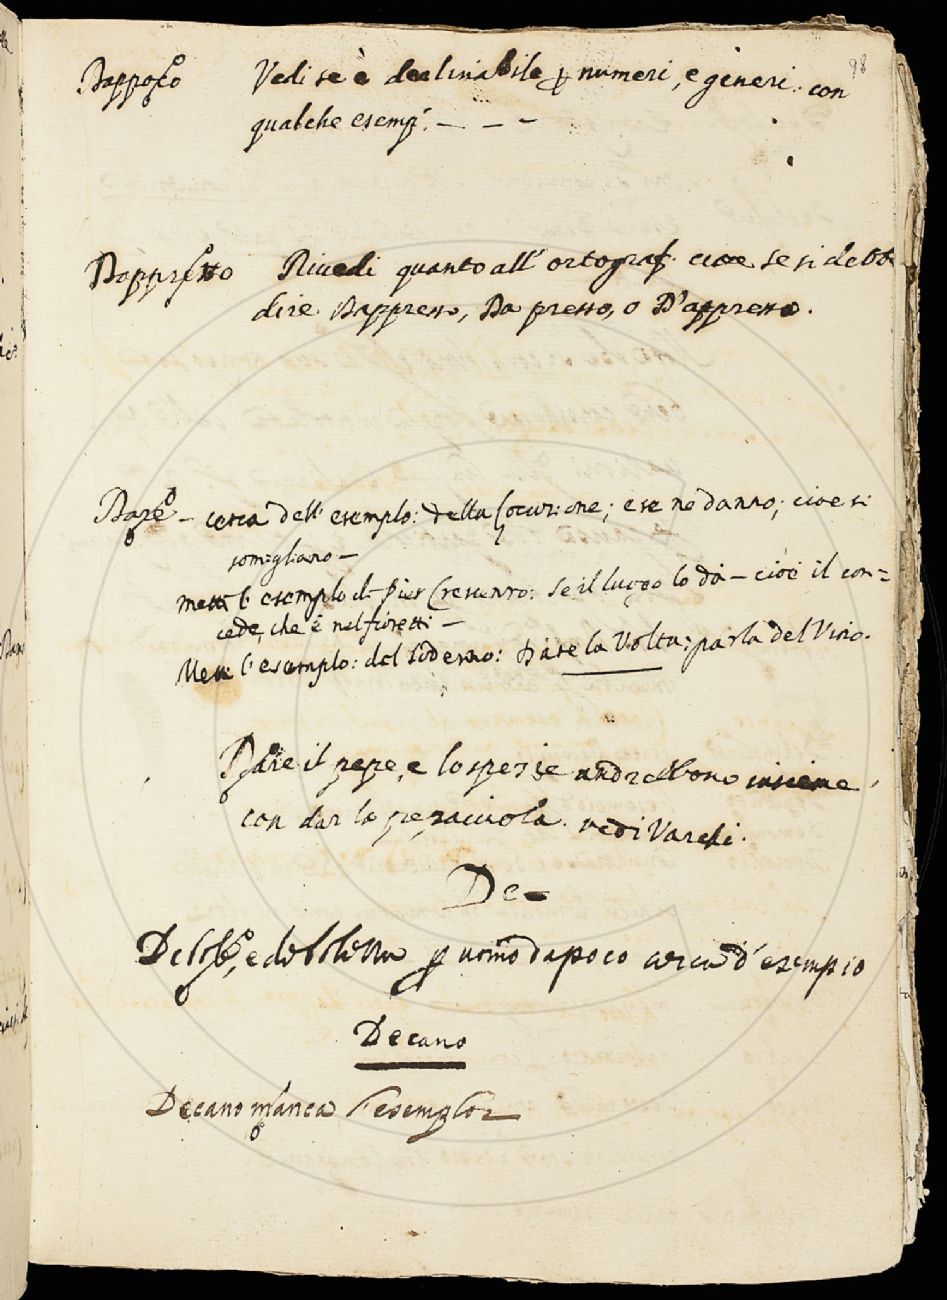 98
Dappoco Vedi se è declinabile p numeri, e gèneri: con
qualche esemp. — — —
Dappresso Rivedi quanto all' ortograf. cioè se si debbe
dire Dappresso, Da presso, o D'appresso.
Dare — cerca dell' esemplo: della locuzione; e se ne danno; cioè si
somigliano —
metti l' esemplo di Pier Crescenzo: Se il luogo lo dà — cioè il con=
cede, che è nel fioretti —
Metti l'esemplo: del Soderno: Dare la Volta: parla del Vino.
Dare il pepe, e lo spezie andrebbono insieme
con dar la pepaiuola. vedi Varchi.
De —
Debole, e debolezza p uomo dapoco cerca d'esempio
Decano
Decano manca l'esemplo